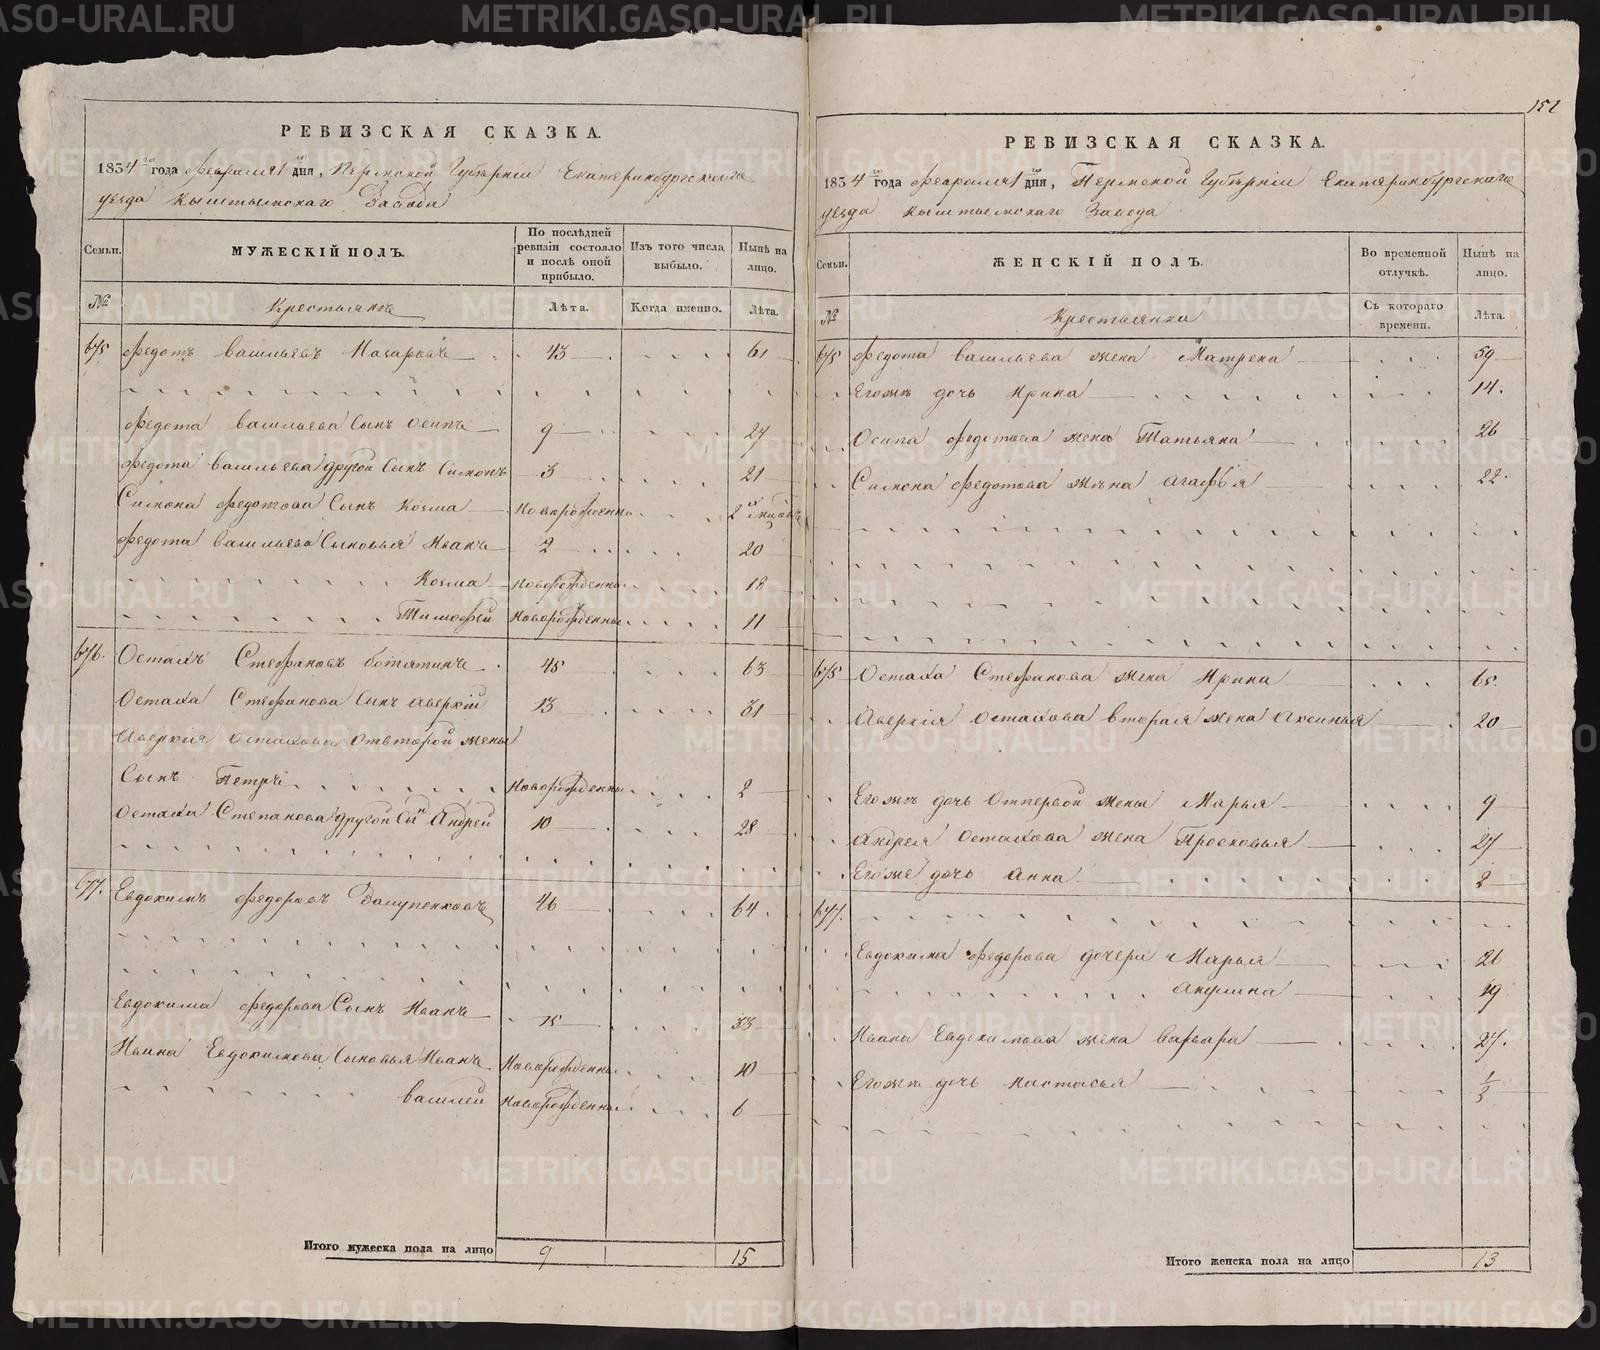 152
РЕВИЗСКАЯ СКАЗКА.
1834 го года Февраля 1 дня, Пермской Губѣрніи Екатеринбургскаго
уезда Кыштымскаго Завода
Семьи.
МУЖЕСКІЙ ПОЛЪ.
По послѣдней ревизіи состояло и послѣ оной прибыло.
Изъ того числа выбыло.
Нынѣ на лицо.
№
Крестьянъ
Лѣта.
Когда именно.
Лѣта.
675 Федотъ Васильевъ Назаровъ 43 61
Федота Васильева Сынъ Осипъ 9 27
Федота Васильева другой Сынъ Симонъ 3 21
Симона Федотова Сынъ Козма Новорожденны 2
Федота Васильева Сыновья Иванъ 2 20
Козма Новорожденны 18
Тимофей Новорожденны 11
676. Остахъ Стефановъ 45 63
Остаха Стефанова Сынъ Аверкій 13 31
Аверкія Остахова Отвторой жены
Сынъ Петръ Новорожденны 2
Остаха Степанова другой Сынъ Андрей 10 28
677. Евдокимъ Федоровъ 46 64
Евдокима Федорова Сынъ Иванъ 15 33
Ивана Евдокимова Сыновья Иванъ Новорожденны 10
Василий Новорожденны 6
Итого мужеска пола на лицо 9 15
РЕВИЗСКАЯ СКАЗКА.
1834 го года Февраля 1 дня, Пермской Губѣрніи Екатеринбургскаго
уезда Кыштымскаго Завода
Семьи.
ЖЕНСКІЙ ПОЛЪ.
Во временной отлучкѣ.
Нынѣ на лицо.
№
Крестьянки
Съ котораго времени.
Лѣта.
675 Федота Васильева жена Матрена 59
Егожъ дочь Ирина 14.
Осипа Федотова жена Татьяна 26
Симона Федотова жена Агафья 22.
675 Остаха Стефанова жена Ирина 65.
Аверкія Остахова вторая жена Аксинья 20
Егожъ дочь Отпервой жены Марья 9
Андрея Остахова жена Просковья 27
Егоже дочь Анна 2
677.
Евдокима Федорова дочери Марья 26
Акулина 19
Ивана Евдокимова жена Варвара 27.
Егожъ дочь Настасья 1/3
Итого женска пола на лицо 13
METRIKI.GASO-URAL.RU